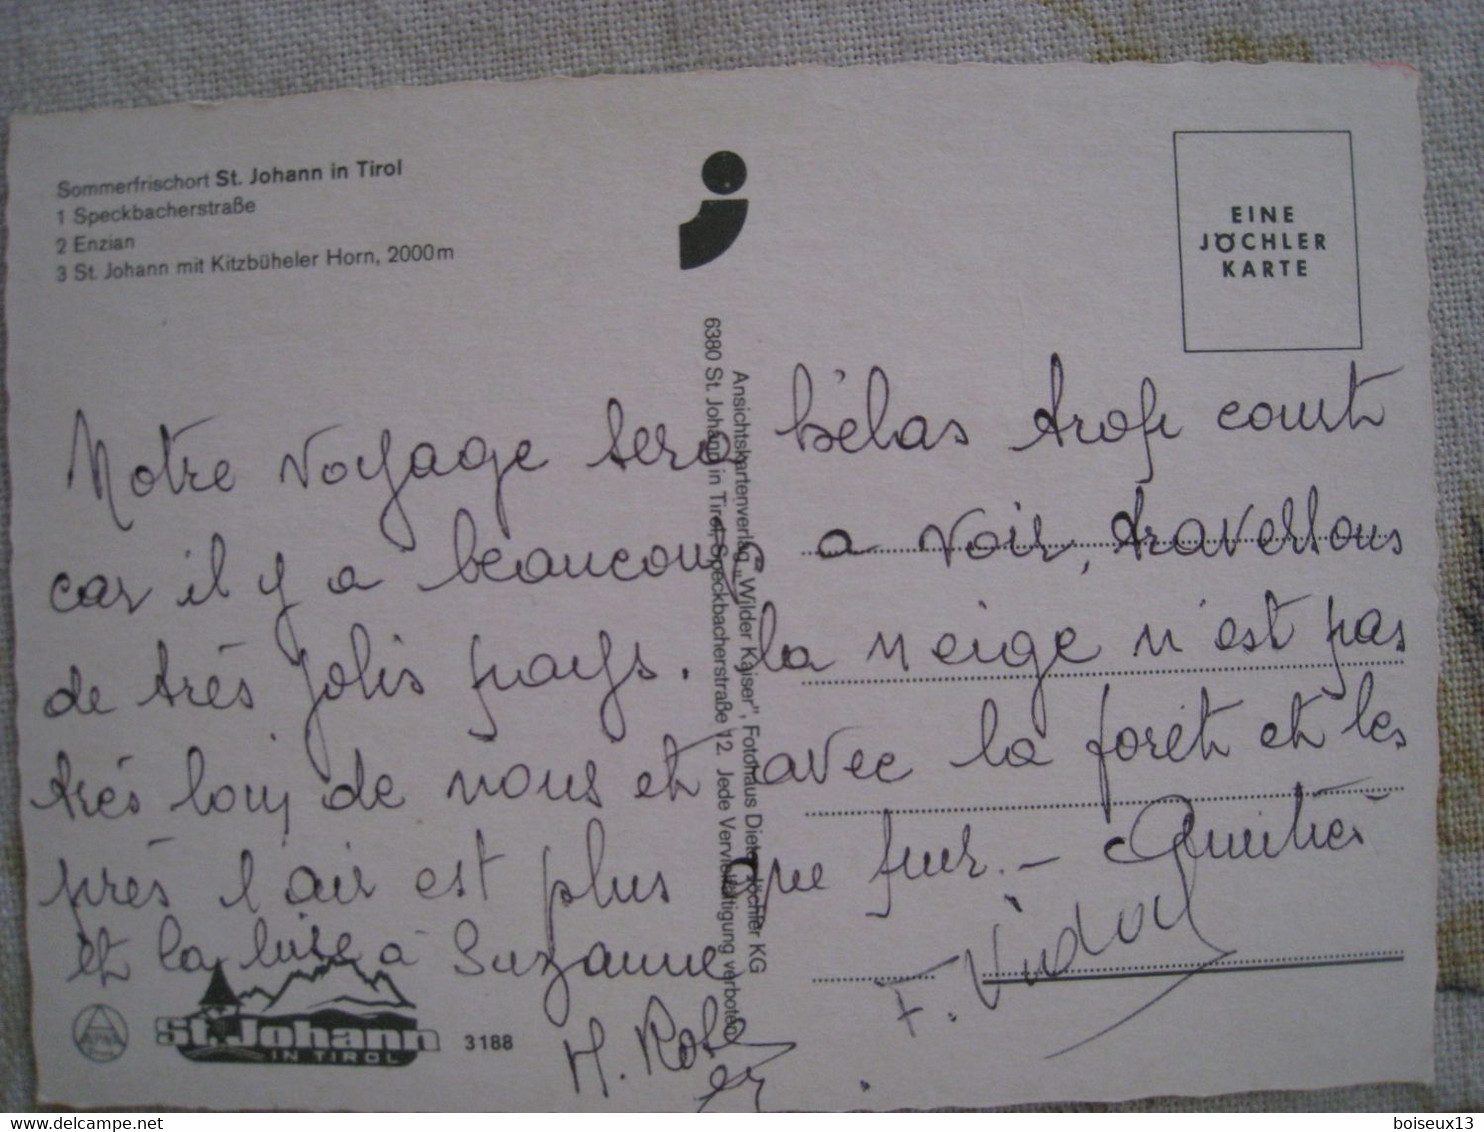 Sommerfrischort St. Johann in Tirol
1 Speckbacherstraße
2 Enzian
3 St. Johann mit Kitzbüheler Horn, 2000m
EINE
JÖCHLER
KARTE
Ansichtskartenverlag „Wilder Kaiser", Fotohaus Dieter Jöchler KG
6380 St. Johann in Tirol, Speckbacherstraße 12. Jede Vervielfältigung verboten
Notre voyage sera hélas trop court
car il y a beaucoup a voir, traversons
de très jolis pays. la neige n'est pas
très loin de nous et avec la forêt et les
près l'air est plus que pur. – Amitiés
et la bise à Suzanne
M. Rob
F. Vidal
St. Johann
IN TIROL
3188
boiseux13